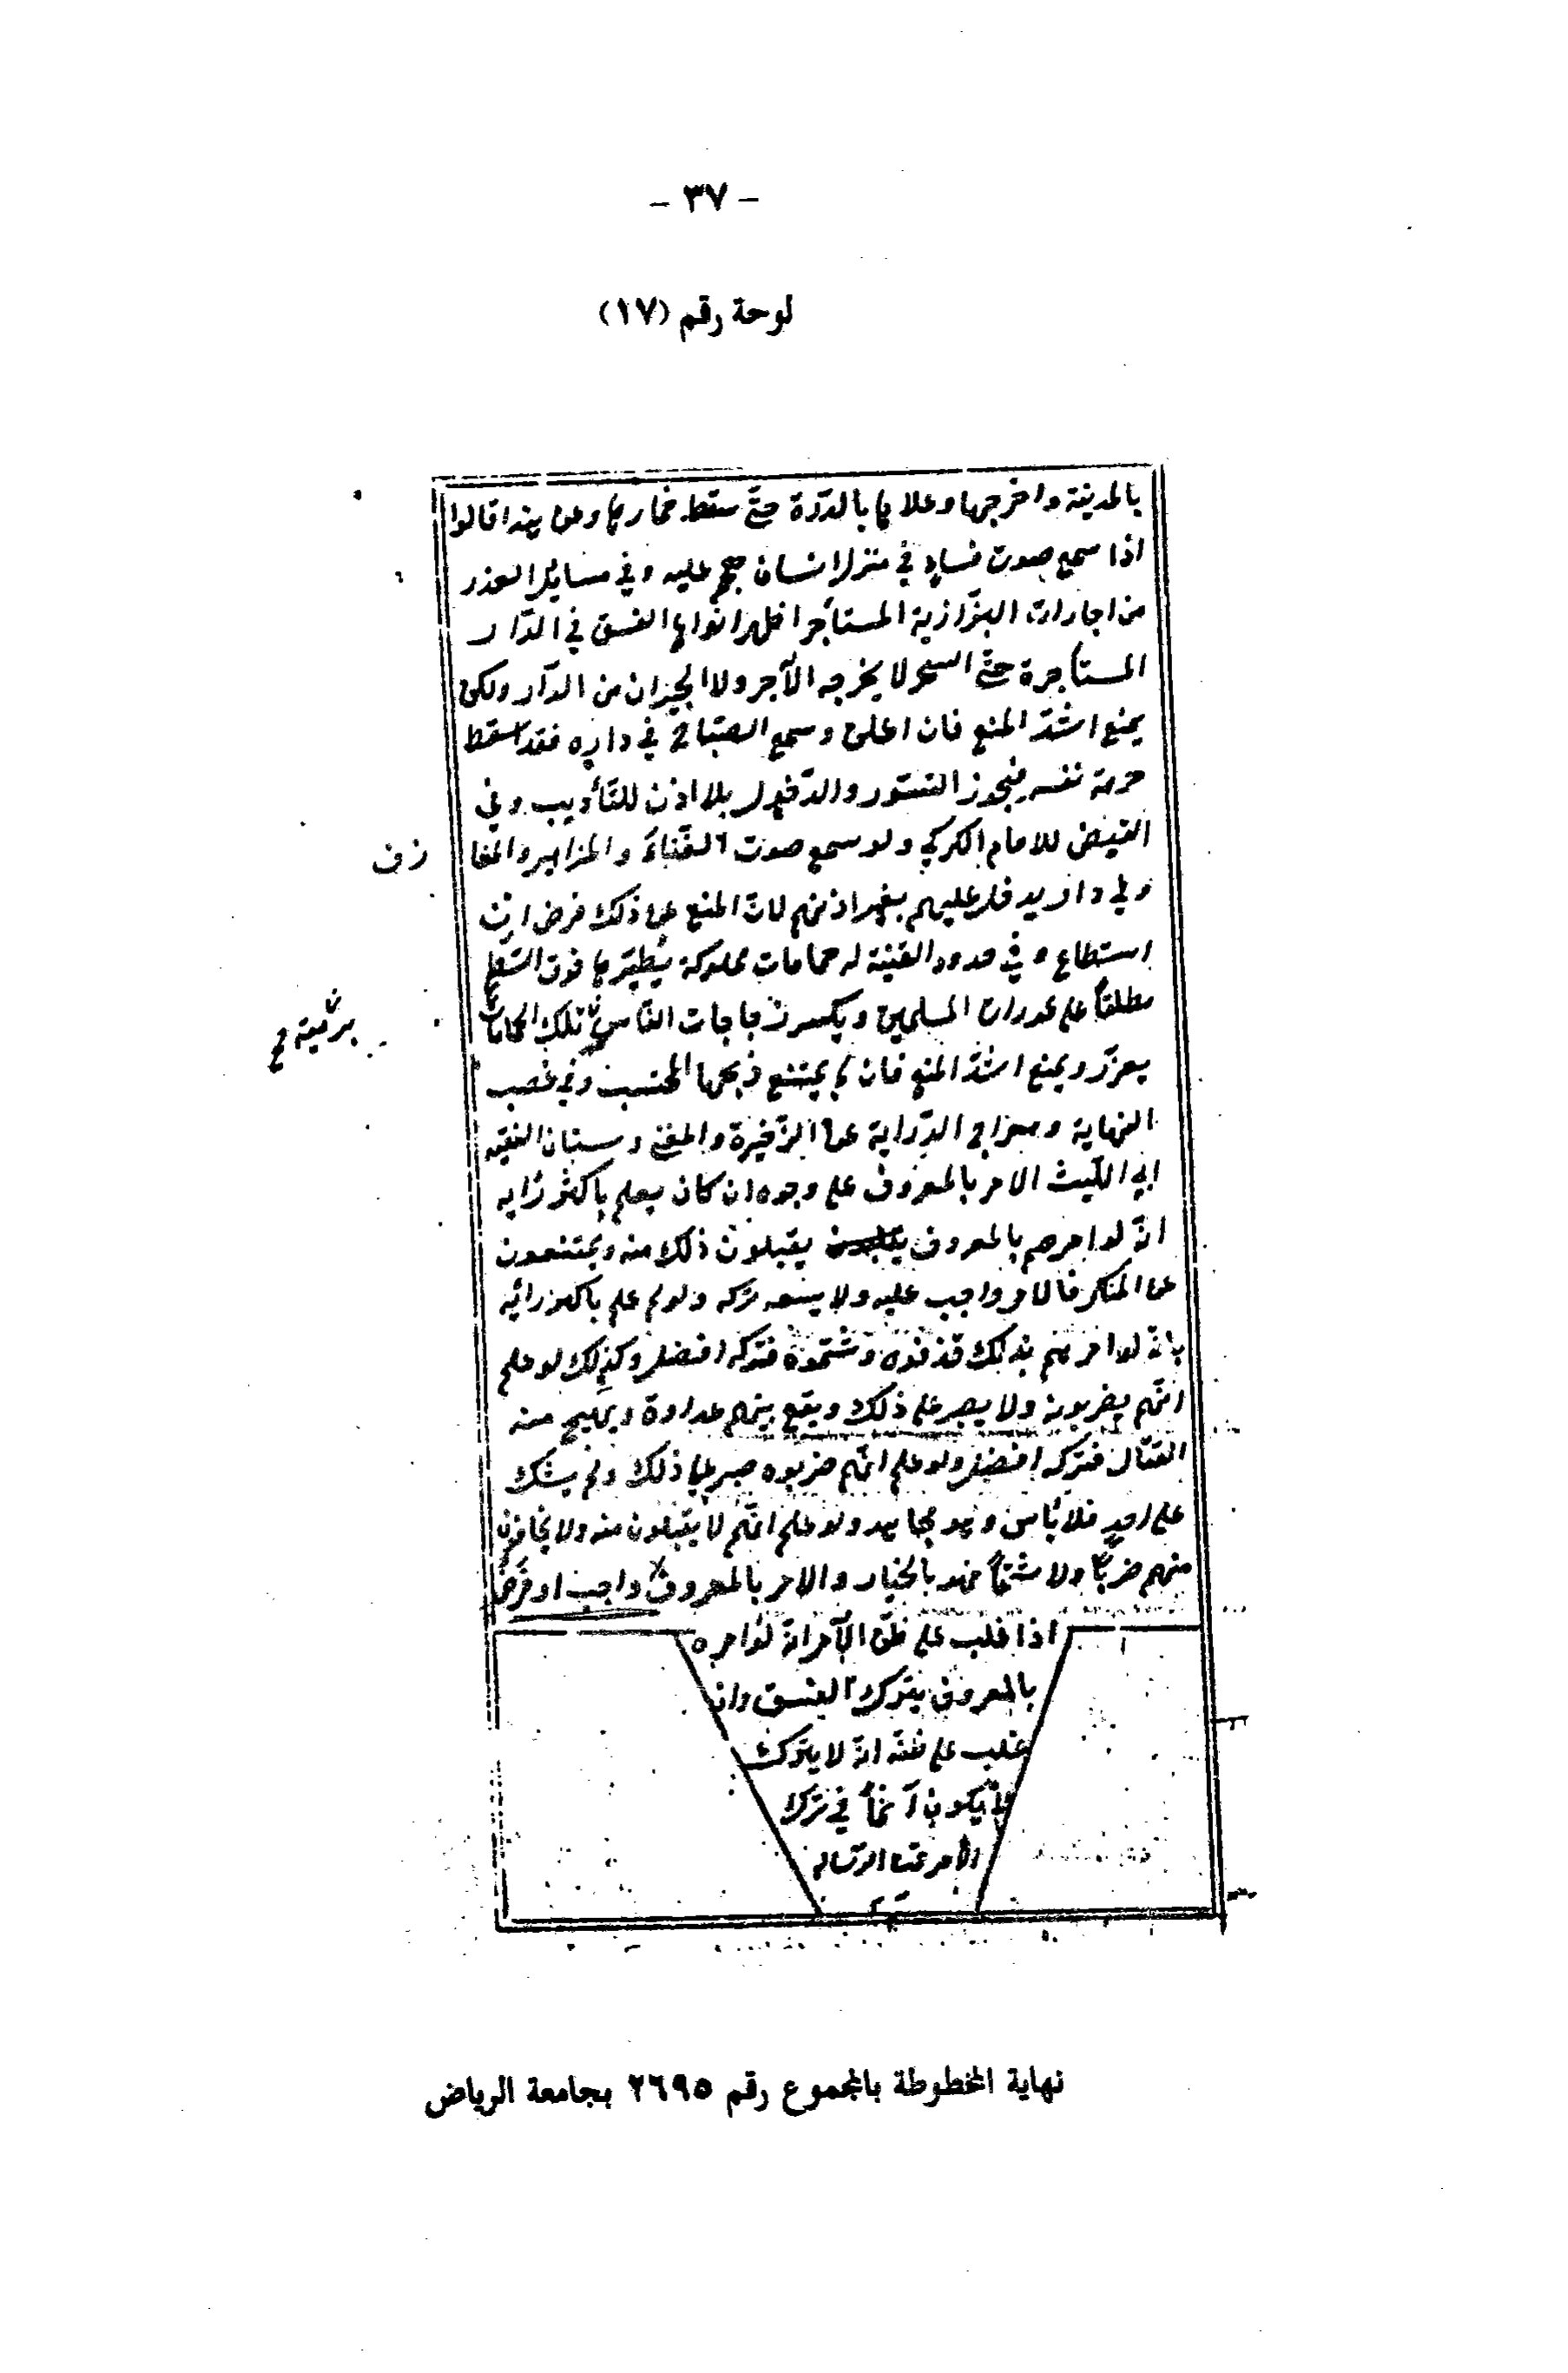 - ٣٧ -
لوحة رقم (١٧)
بالمدينة واخرجها وعلاها بالدرة حتّى سقط خمارها وعن هذا قالوا
اذا سمع صوت فساد في منزل انسان هجم عليه وفي مسايل العذر
من اجارات البزّازية المستأجر اظهر انواع الفسق في الدّار
المستأجرة حتّى السحر لا يخرجه الآجر ولا الجيران من الدّار ولكن
يمنع اشدّ المنع فان اعلن وسمع الصّياح في داره فقد اسقط
حرمة نفسه فيجوز التسوّر والدّخول بلا اذن للتأديب وفي
الفيض للامام الكركي ولو سمع صوت الغناء والمزامير والمعا
زف
في دار يدخل عليهم بغير اذنهم لانّ المنع عن ذلك فرض ان
استطاع وفي حدود القنية له حمامات مملوكة يطيّرها فوق السّطح
مطلقاً على عورات المسلمين ويكسر زجاجات النّاس تلك الحمامات
برميه
يعزّر ويمنع اشدّ المنع فان لم يمتنع ذبحها المحتسب وفي غصب
النهاية ومعراج الدّراية عن الذّخيرة والمغني وبستان الفقيه
ابي اللّيث الامر بالمعروف على وجوه ان كان يعلم باكثر رأيه
انّه لو امرهم بالمعروف يقبلون ذلك منه ويمتنعون
عن المنكر فالامر واجب عليه ولا يسعه تركه ولو علم باكبر رأيه
بانّه لو امرهم بذلك قذفوه وشتموه فتركه افضل وكذلك لو علم
انّهم يضربونه ولا يصبر على ذلك ويقع بينهم عداوة ويهيج منه
القتال فتركه افضل ولو علم انّهم ضربوه صبر على ذلك ولم يشك
على احد فلا بأس وهو مجاهد ولو علم انّهم لا يقبلون منه ولا يخاف
منهم ضرباً ولا شتماً فهو بالخيار والامر بالمعروف واجب او فرض
اذا غلب على ظنّ الآمر انّه لو امره
بالمعروف يترك الفسق وان
غلب على ظنّه انّه لا يترك
لا يكون آثماً في ترك
الأمر تمت الرّساله
نهاية المخطوطة بالمجموع رقم ٢٦٩٥ بجامعة الرياض